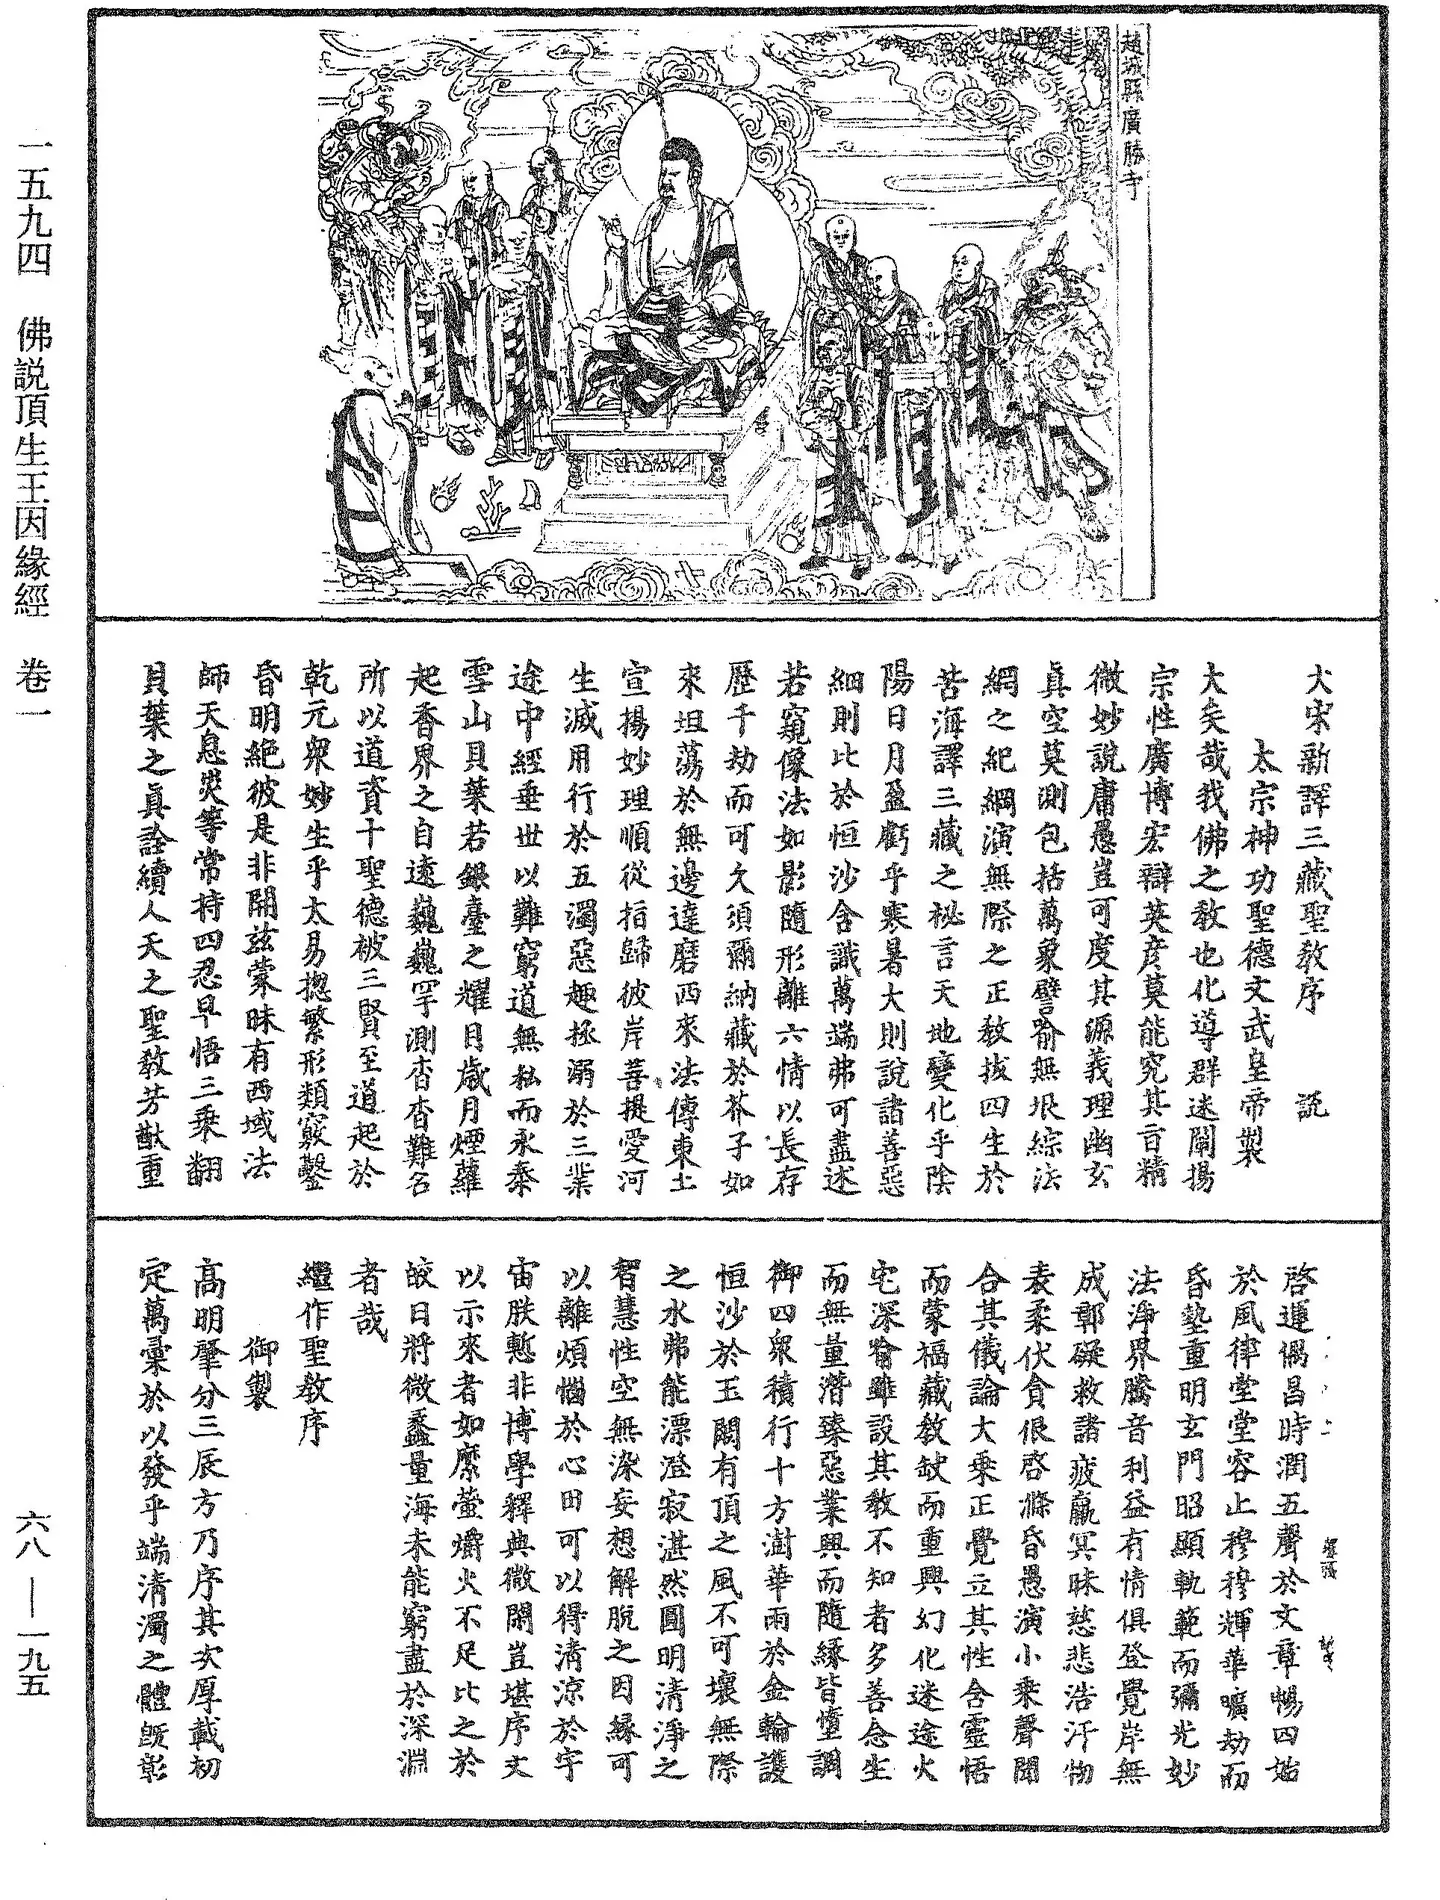 趙城縣廣勝寺
大宋新譯三藏聖教序　說
太宗神功聖德文武皇帝製
大矣哉我佛之教也化導群迷闡揚
宗性廣博宏辯英彦莫能究其旨精
微妙說庸愚豈可度其源義理幽玄
真空莫測包括萬象譬喻無垠綜法
網之紀綱演無際之正教拔四生於
苦海譯三藏之祕言天地變化乎陰
陽日月盈虧乎寒暑大則說諸善惡
細則比於恒沙含識萬端弗可盡述
若窺像法如影隨形離六情以長存
歷千劫而可久須彌納藏於芥子如
來坦蕩於無邊達磨西來法傳東土
宣揚妙理順從指歸彼岸菩提愛河
生滅用行於五濁惡趣拯溺於三業
途中經垂世以難窮道無私而永泰
雪山貝葉若銀臺之耀目歲月煙蘿
起香界之自遠巍巍罕測杳杳難名
所以道資十聖德被三賢至道起於
乾元衆妙生乎太易揔繁形類竅鑿
昏明絶彼是非開茲蒙昧有西域法
師天息災等常持四忍早悟三乘翻
貝葉之真詮續人天之聖教芳猷重
啓運偶昌時潤五聲於文章暢四始
於風律堂堂容止穆穆輝華曠劫而
昏墊重明玄門昭顯軌範而彌光妙
法淨界騰音利益有情俱登覺岸無
成鄣礙救諸疲羸冥昧慈悲浩汗物
表柔伏貪佷啓滌昏愚演小乘聲聞
合其儀論大乘正覺立其性含靈悟
而蒙福藏教缺而重興幻化迷途火
宅深喻雖設其教不知者多善念生
而無量潛臻惡業興而隨緣皆墮調
御四衆積行十方澍華雨於金輪護
恒沙於玉闕有頂之風不可壞無際
之水弗能漂澄寂湛然圓明清淨之
智慧性空無染妄想解脫之因緣可
以離煩惱於心田可以得清涼於宇
宙朕慙非博學釋典微閑豈堪序文
以示來者如縻螢爝火不足比之於
皎日將微蠡量海未能窮盡於深淵
者哉
繼作聖教序
御製
高明肇分三辰方乃序其次厚載初
定萬彙於以發乎端清濁之體旣彰
一五九四　佛説頂生王因緣經　卷一
六八—一九五